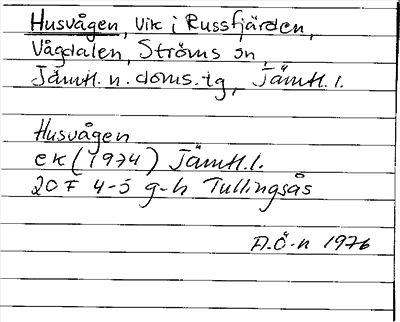 Husvågen, Vik i Russfjärden,
Vågdalen, Ströms sn,
Jämtl. n. doms. tg, Jämtl. l.
Husvågen
ek (1974) Jämtl. l.
20 F 4-5 g-h Tullingsås
A.Ö-n 1976